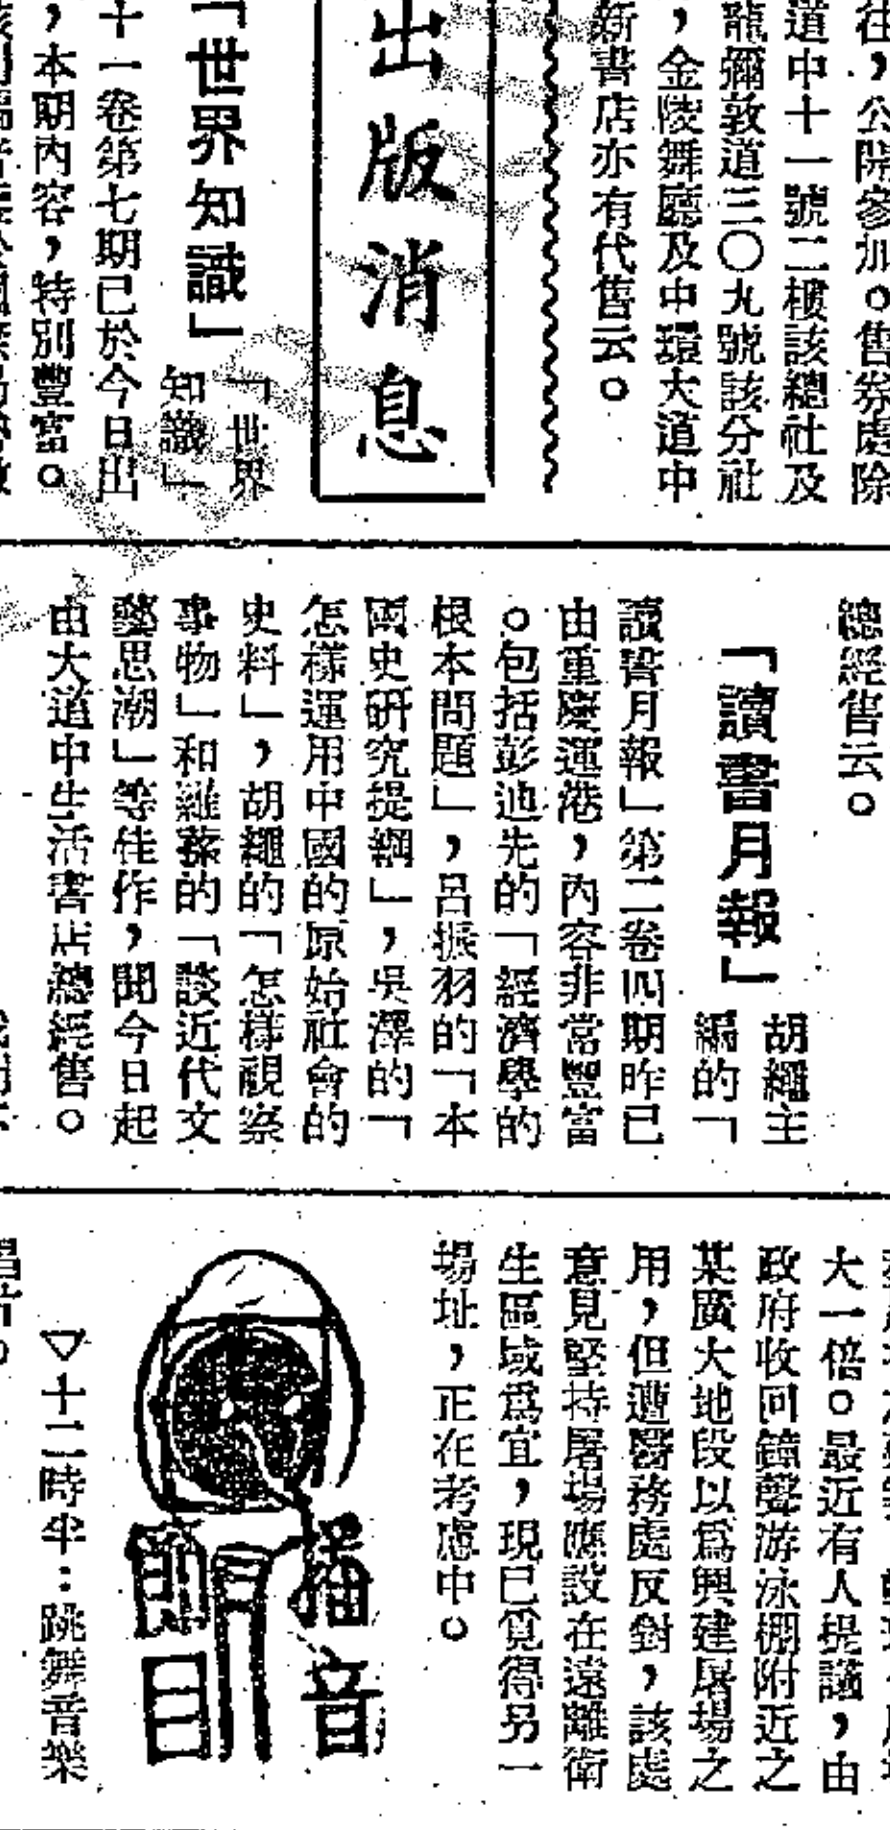 往，公開參加。售券處除
道中十一號二樓該總社及
龍彌敦道三〇九號該分社
，金陵舞廳及中環大道中
新書店亦有代售云。
出版消息
「世界知識」
「世界
知識」
十一卷第七期已於今日出
，本期內容，特別豐富。
總經售云。
「讀書月報」
胡繩主
編的「
讀書月報」第二卷四期昨已
由重慶運港，內容非常豐富
。包括彭迪先的「經濟學的
根本問題」，呂振羽的「本
國史研究提綱」，吳澤的「
怎樣運用中國的原始社會的
史料」，胡繩的「怎樣視察
事物」和維蘇的「談近代文
藝思潮」等佳作，聞今日起
由大道中生活書店總經售。
大一倍。最近有人提議，由
政府收回鐘聲游泳棚附近之
某廣大地段以爲興建屠場之
用，但遭醫務處反對，該處
意見堅持屠場應設在遠離衛
生區域爲宜，現已覓得另一
場址，正在考慮中。
播音
節目
▽十二時半：跳舞音樂
唱片。